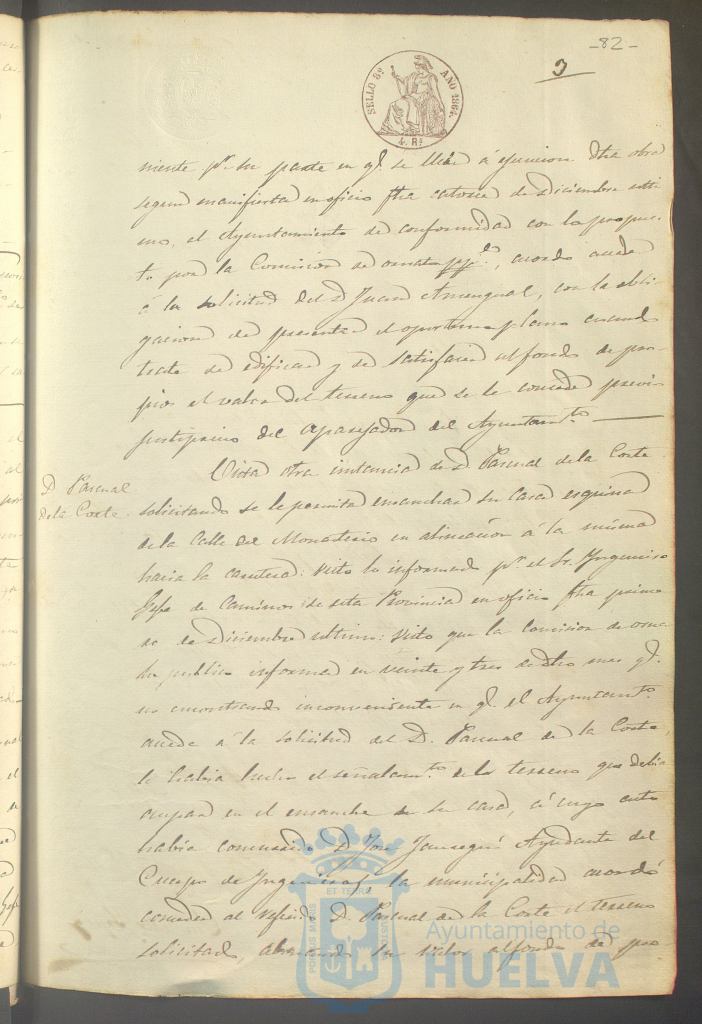 -82-
3
SELLO 8º AÑO 1864.
4. Rs
niente pr. su parte en q. se lleve á ejecucion dha obra
segun manifiesta en oficio fha catorce de Diciembre ulti
mo, el Ayuntamiento de conformidad con lo propues
to por la Comision de ornato, acordó acceder
á la solicitud del D Juan, con la obli
gacion de presentar el oportuno plano cuando
trate de edificar y de satisfacer al fondo de pro
pios el valor del terreno que se le concede previo
justiprecio del aparejador del Ayuntamto.
D Pascual
de la Corte
Vista otra instancia de D Pascual de la Corte
solicitando se le permita ensanchar su casa esquina
de la Calle del Monasterio en alineacion á la misma
hacia la carretera: visto lo informado pr el Sr. Ingeniero
Gefe de Caminos de esta Provincia en oficio fha prime
ro de Diciembre ultimo: visto que la comision de orna
to publico informa en veinte y tres de dho mes q.
no encontrando inconveniente en q. el Ayuntamto.
acceda á la solicitud del D. Pascual de la Corte,
le habia hecho el señalamto. de terreno que debia
ocupar en el ensanche de su casa, á cuyo acto
habia concurrido D José Ayudante del
Cuerpo de Ingenieros, la municipalidad acordó
conceder al referido D. Pascual de la Corte el terreno
solicitado, abonando su valor al fondo de pro
PORTUS MARIS ET TERRE CUSTODIA
Ayuntamiento de
HUELVA